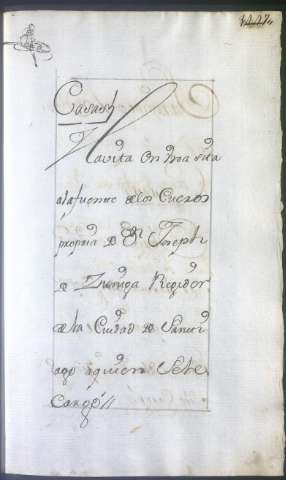 Casas//
Havita en una
a la fuente de los Cueros
propria de Dn Joseph
de Zuniga Regidor
de la Ciudad de Santi
ago a quien se le
cargó//